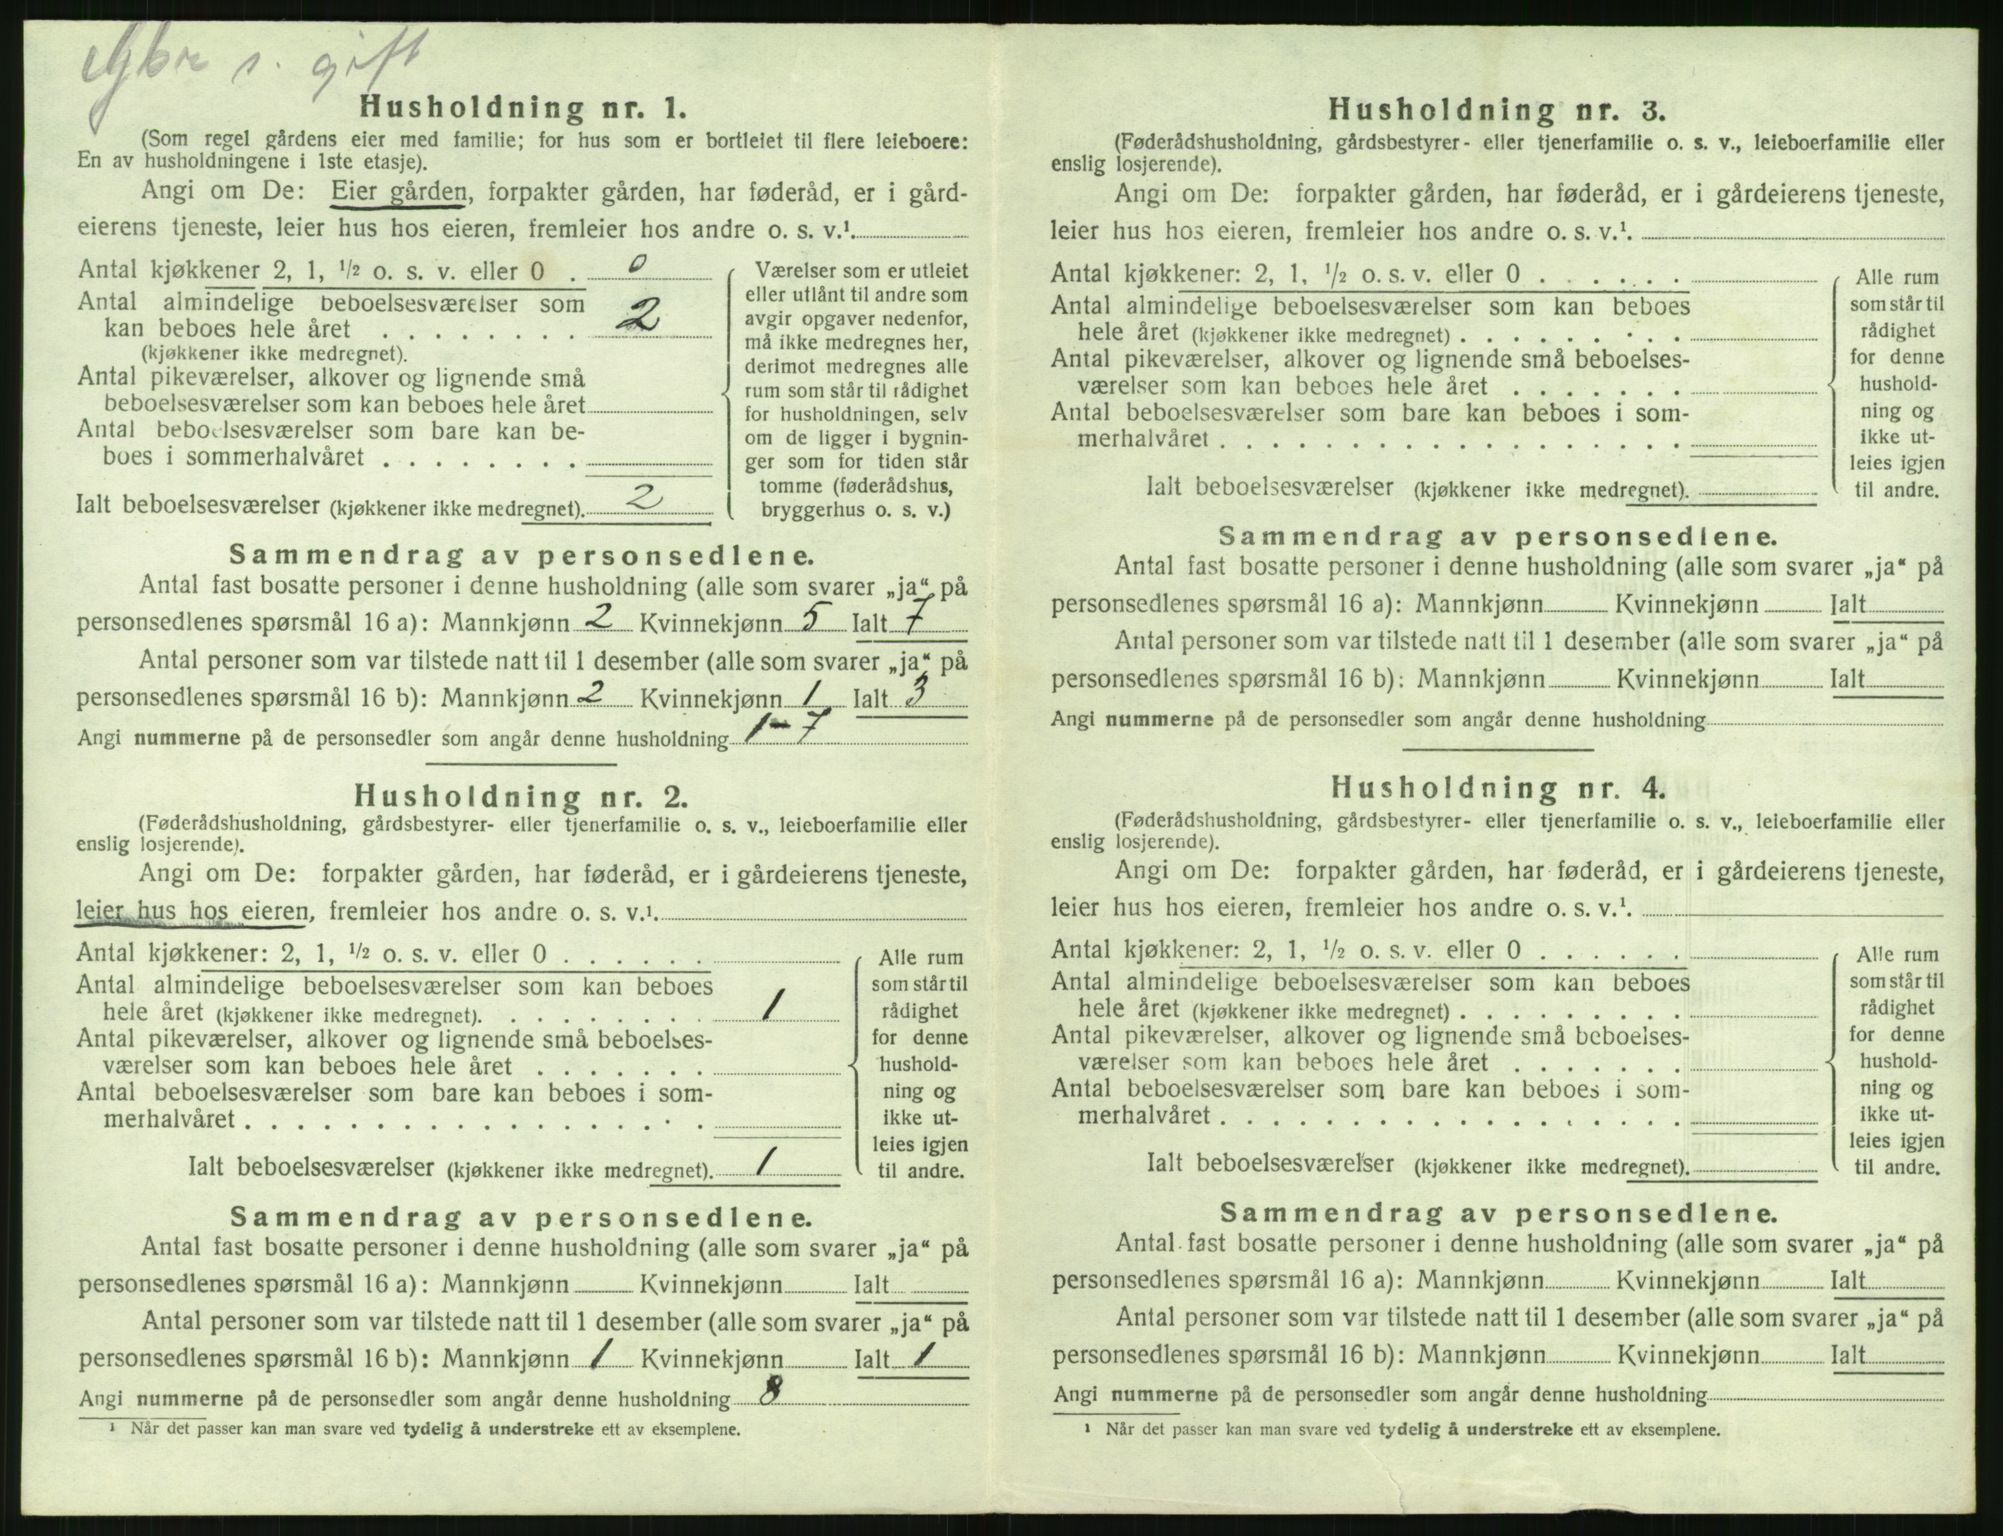 s. gift
Husholdning nr. 1.
(Som regel gårdens eier med familie; for hus som er bortleiet til flere leieboere:
En av husholdningene i 1ste etasje).
Angi om De: Eier gården, forpakter gården, har føderåd, er i gård-
eierens tjeneste, leier hus hos eieren, fremleier hos andre o. s. v.¹.
Antal kjøkkener 2, 1, ½ o. s. v. eller 0 . 0
Antal almindelige beboelsesværelser som
kan beboes hele året . . . . . . . . 2
(kjøkkener ikke medregnet).
Antal pikeværelser, alkover og lignende små
beboelsesværelser som kan beboes hele året
Antal beboelsesværelser som bare kan be-
boes i sommerhalvåret . . . . . . . .
Ialt beboelsesværelser (kjøkkener ikke medregnet). 2
Værelser som er utleiet
eller utlånt til andre som
avgir opgaver nedenfor,
må ikke medregnes her,
derimot medregnes alle
rum som står til rådighet
for husholdningen, selv
om de ligger i bygnin-
ger som for tiden står
tomme (føderådshus,
bryggerhus o. s. v.)
Sammendrag av personsedlene.
Antal fast bosatte personer i denne husholdning (alle som svarer „ja“ på
personsedlenes spørsmål 16 a): Mannkjønn 2 Kvinnekjønn 5 Ialt 7
Antal personer som var tilstede natt til 1 desember (alle som svarer „ja“ på
personsedlenes spørsmål 16 b): Mannkjønn 2 Kvinnekjønn 1 Ialt 3
Angi nummerne på de personsedler som angår denne husholdning 1-7
Husholdning nr. 2.
(Føderådshusholdning, gårdsbestyrer- eller tjenerfamilie o. s. v., leieboerfamilie eller
enslig losjerende).
Angi om De: forpakter gården, har føderåd, er i gårdeierens tjeneste,
leier hus hos eieren, fremleier hos andre o. s. v.¹.
Antal kjøkkener: 2, 1, ½ o. s. v. eller 0 . . . . . .
Antal almindelige beboelsesværelser som kan beboes
hele året (kjøkkener ikke medregnet). . . . . . . . . 1
Antal pikeværelser, alkover og lignende små beboelses-
værelser som kan beboes hele året . . . . . . .
Antal beboelsesværelser som bare kan beboes i som-
merhalvåret . . . . . . . . . . . . . . . . .
Ialt beboelsesværelser (kjøkkener ikke medregnet). 1
Alle rum
som står til
rådighet
for denne
hushold-
ning og
ikke ut-
leies igjen
til andre.
Sammendrag av personsedlene.
Antal fast bosatte personer i denne husholdning (alle som svarer „ja“ på
personsedlenes spørsmål 16 a): Mannkjønn Kvinnekjønn Ialt
Antal personer som var tilstede natt til 1 desember (alle som svarer „ja“ på
personsedlenes spørsmål 16 b): Mannkjønn 1 Kvinnekjønn Ialt 1
Angi nummerne på de personsedler som angår denne husholdning 8
¹ Når det passer kan man svare ved tydelig å understreke ett av eksemplene.
Husholdning nr. 3.
(Føderådshusholdning, gårdsbestyrer- eller tjenerfamilie o. s. v., leieboerfamilie eller
enslig losjerende).
Angi om De: forpakter gården, har føderåd, er i gårdeierens tjeneste,
leier hus hos eieren, fremleier hos andre o. s. v.¹.
Antal kjøkkener: 2, 1, ½ o. s. v. eller 0 . . . . . .
Antal almindelige beboelsesværelser som kan beboes
hele året (kjøkkener ikke medregnet) . . . . . . . . .
Antal pikeværelser, alkover og lignende små beboelses-
værelser som kan beboes hele året . . . . . . .
Antal beboelsesværelser som bare kan beboes i som-
merhalvåret . . . . . . . . . . . . . . . . .
Ialt beboelsesværelser (kjøkkener ikke medregnet).
Alle rum
som står til
rådighet
for denne
hushold-
ning og
ikke ut-
leies igjen
til andre.
Sammendrag av personsedlene.
Antal fast bosatte personer i denne husholdning (alle som svarer „ja“ på
personsedlenes spørsmål 16 a): Mannkjønn Kvinnekjønn Ialt
Antal personer som var tilstede natt til 1 desember (alle som svarer „ja“ på
personsedlenes spørsmål 16 b): Mannkjønn Kvinnekjønn Ialt
Angi nummerne på de personsedler som angår denne husholdning
Husholdning nr. 4.
(Føderådshusholdning, gårdsbestyrer- eller tjenerfamilie o. s. v., leieboerfamilie eller
enslig losjerende).
Angi om De: forpakter gården, har føderåd, er i gårdeierens tjeneste,
leier hus hos eieren, fremleier hos andre o. s. v.¹.
Antal kjøkkener: 2, 1, ½ o. s. v. eller 0 . . . . . .
Antal almindelige beboelsesværelser som kan beboes
hele året (kjøkkener ikke medregnet) . . . . . . . . .
Antal pikeværelser, alkover og lignende små beboelses-
værelser som kan beboes hele året . . . . . . .
Antal beboelsesværelser som bare kan beboes i som-
merhalvåret . . . . . . . . . . . . . . . . .
Ialt beboelsesværelser (kjøkkener ikke medregnet).
Alle rum
som står til
rådighet
for denne
hushold-
ning og
ikke ut-
leies igjen
til andre.
Sammendrag av personsedlene.
Antal fast bosatte personer i denne husholdning (alle som svarer „ja“ på
personsedlenes spørsmål 16 a): Mannkjønn Kvinnekjønn Ialt
Antal personer som var tilstede natt til 1 desember (alle som svarer „ja“ på
personsedlenes spørsmål 16 b): Mannkjønn Kvinnekjønn Ialt
Angi nummerne på de personsedler som angår denne husholdning
¹ Når det passer kan man svare ved tydelig å understreke ett av eksemplene.